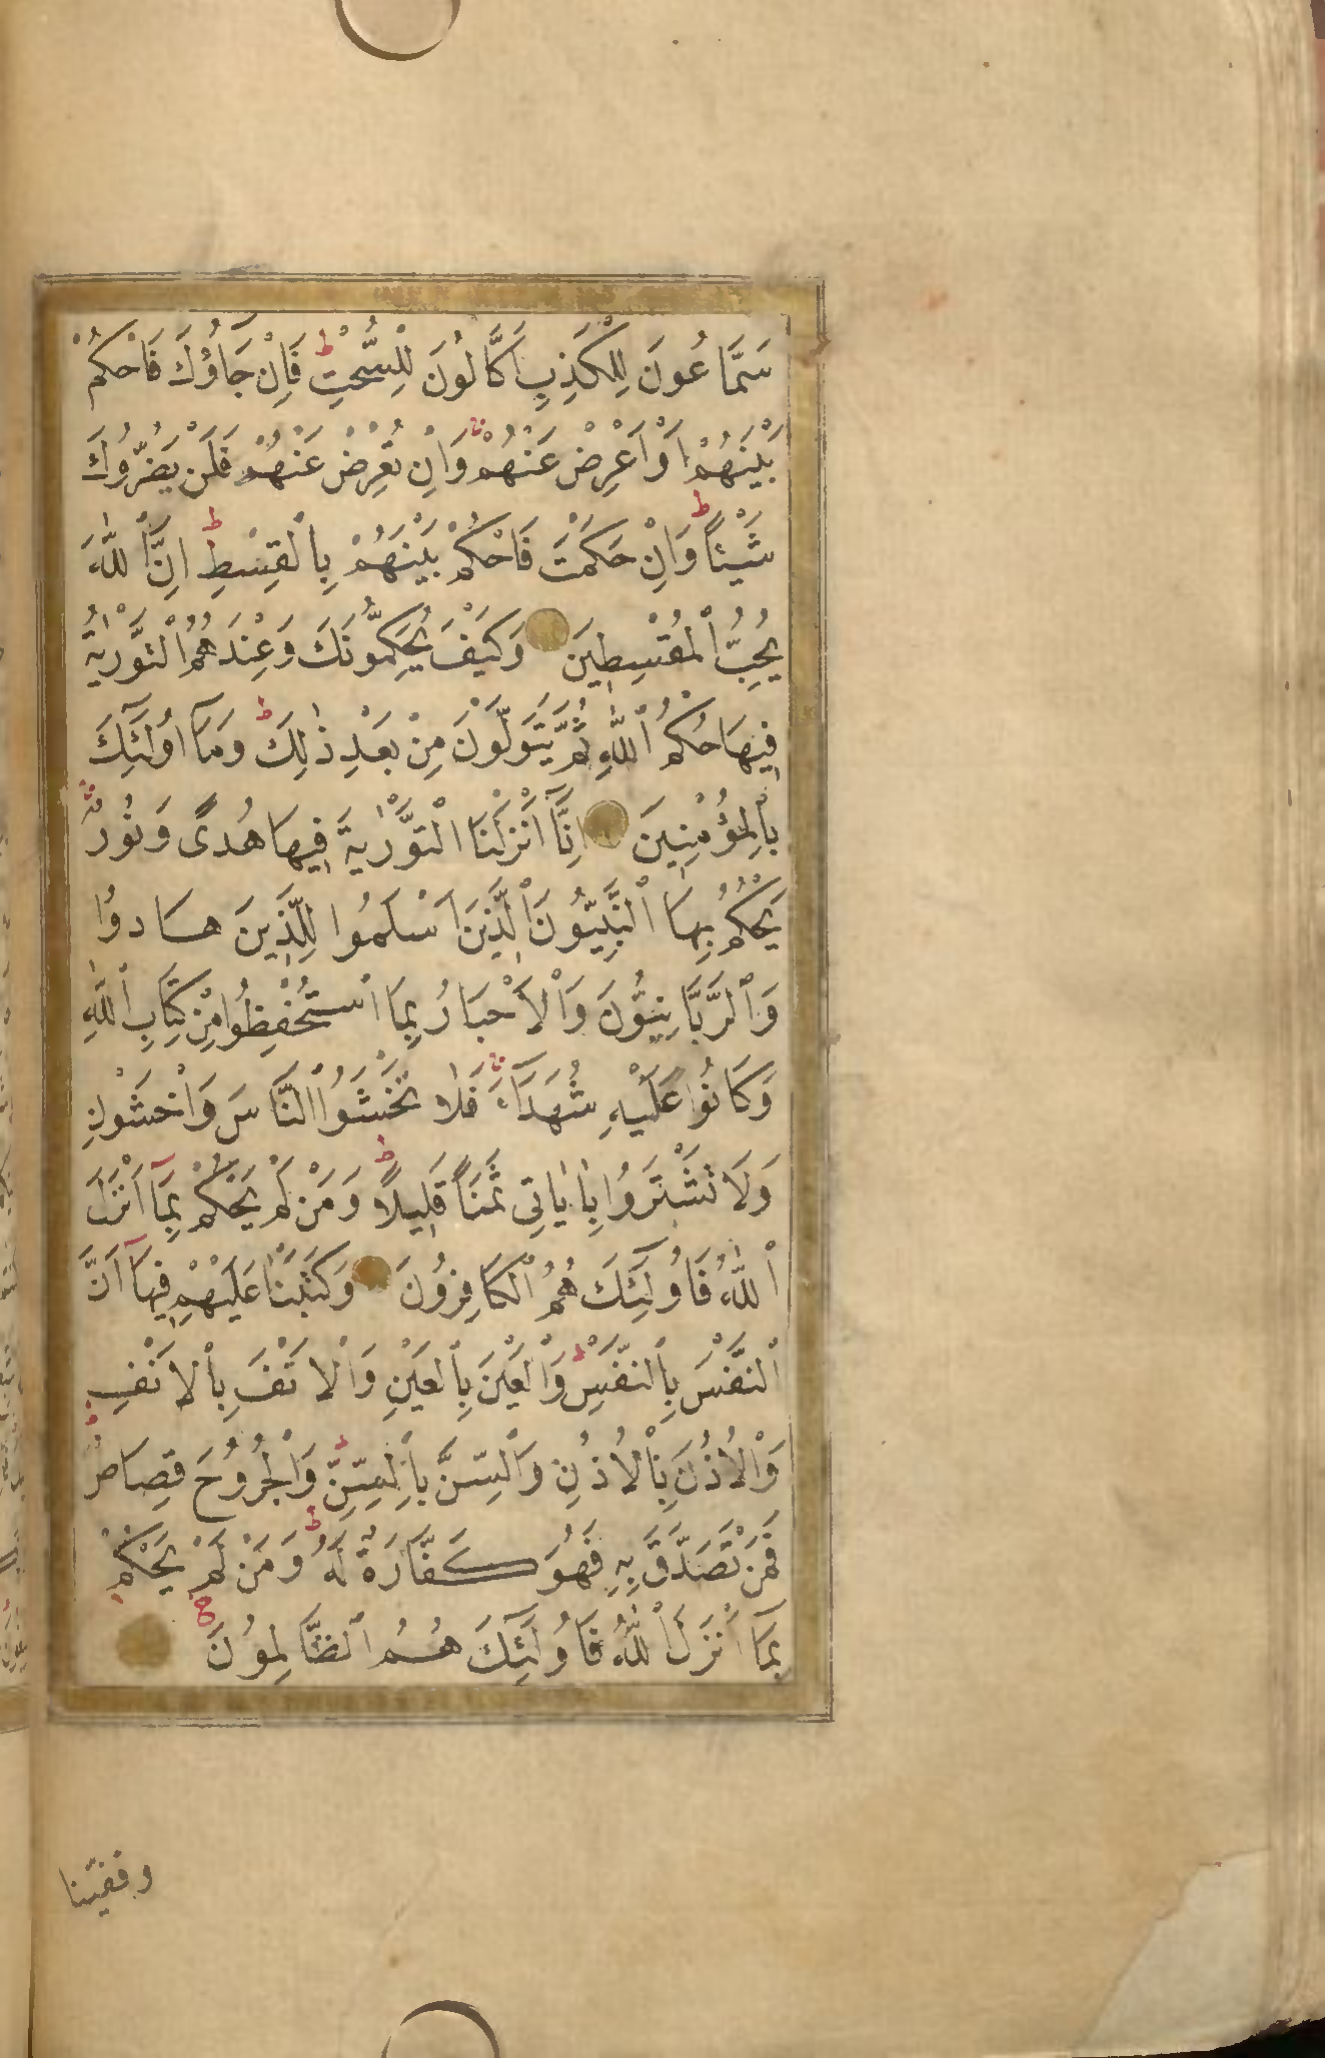 سَمَّاعُونَ لِلْكَذِبِ اَكَّالُونَ لِلسُّحْتِ ط فَاِنْ جَاؤُكَ فَاحْكُمْ
بَيْنَهُمْ اَوْ اَعْرِضْ عَنْهُمْ وَاِنْ تُعْرِضْ عَنْهُمْ فَلَنْ يَضُرُّوكَ
شَيْئاً ط وَاِنْ حَكَمْتَ فَاحْكُمْ بَيْنَهُمْ بِالْقِسْطِ ط اِنَّ اللّٰهَ
يُحِبُّ الْمُقْسِطِينَ وَكَيْفَ يُحَكِّمُونَكَ وَعِنْدَهُمُ التَّوْرٰيةُ
فِيهَا حُكْمُ اللّٰهِ ثُمَّ يَتَوَلَّوْنَ مِنْ بَعْدِ ذٰلِكَ ط وَمَآ اُولٰٓئِكَ
بِالْمُؤْمِنِينَ اِنَّآ اَنْزَلْنَا التَّوْرٰيةَ فِيهَا هُدًى وَنُورٌ
يَحْكُمُ بِهَا النَّبِيُّونَ الَّذِينَ اَسْلَمُوا لِلَّذِينَ هَادوُا
وَالرَّبَّانِيُّونَ وَالْاَحْبَارُ بِمَا اسْتُحْفِظُوا مِنْ كِتَابِ اللّٰهِ
وَكَانُوا عَلَيْهِ شُهَدَآءَ فَلَا تَخْشَوُا النَّاسَ وَاخْشَوْنِ
وَلَا تَشْتَرُوا بِاٰيَاتِى ثَمَنًا قَلِيلًا ط وَمَنْ لَمْ يَحْكُمْ بِمَآ اَنْزَلَ
اللّٰهُ فَاُولٰٓئِكَ هُمُ الْكَافِرُونَ وَكَتَبْنَا عَلَيْهِمْ فِيهَآ اَنَّ
النَّفْسَ بِالنَّفْسِ ط وَالْعَيْنَ بِالْعَيْنِ وَالْاَنْفَ بِالْاَنْفِ
وَالْاُذُنَ بِالْاُذُنِ وَالسِّنَّ بِالسِّنِّ ط وَالْجُرُوحَ قِصَاصٌ
فَمَنْ تَصَدَّقَ بِهِ فَهُوَ كَفَّارَةٌ لَهُ ط وَمَنْ لَمْ يَحْكُمْ
بِمَا اَنْزَلَ اللّٰهُ فَاُولٰٓئِكَ هُمُ الظَّالِمُونَ
وقفّينا